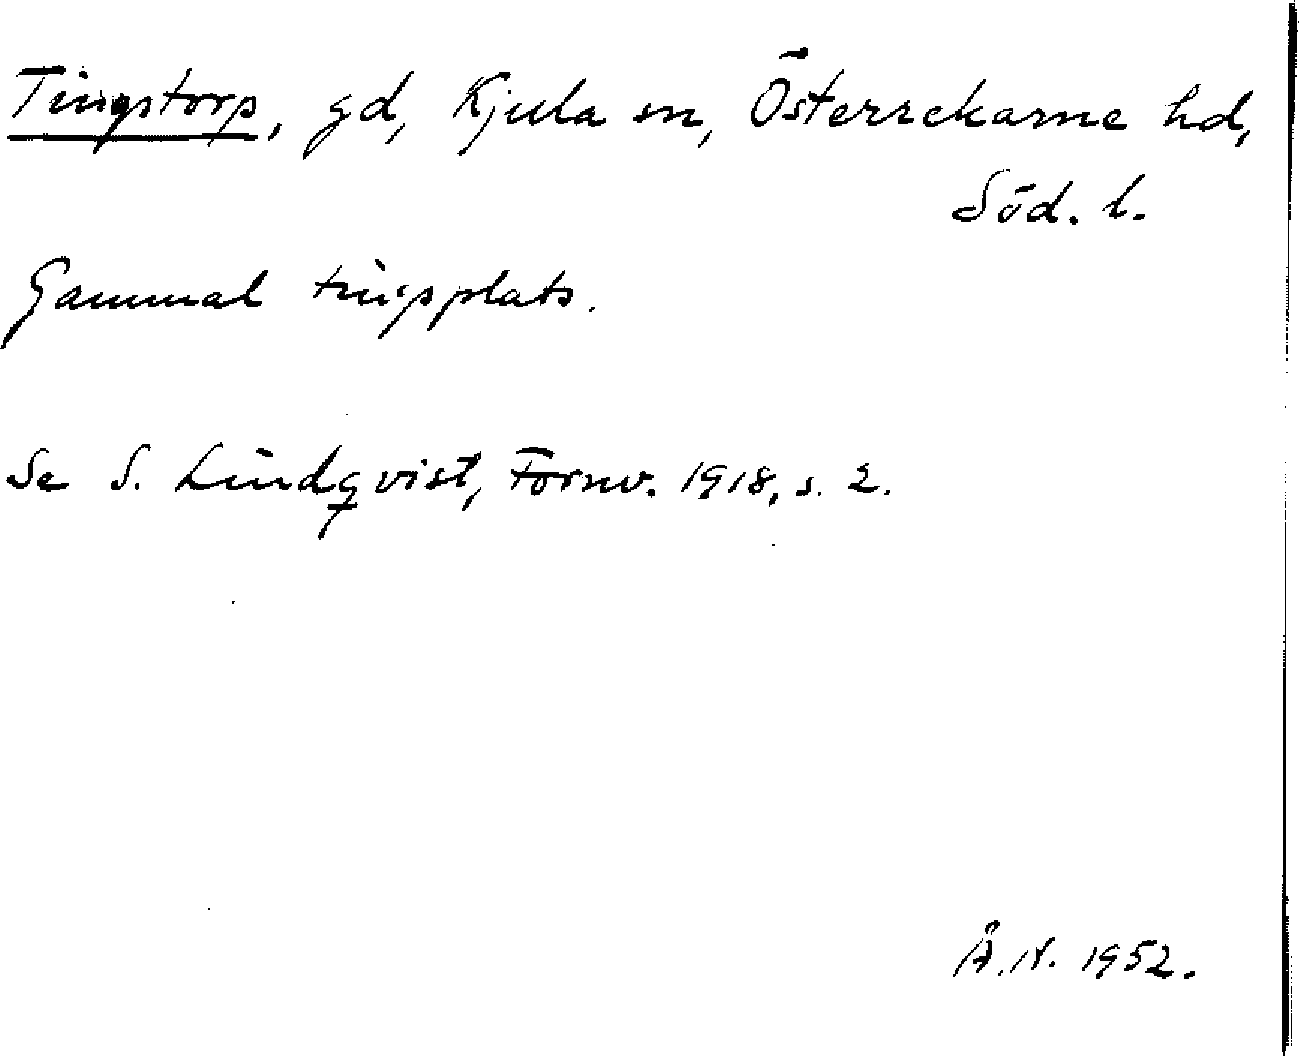 Tingstorp, gd, Kjula sn, Österrekarne hd,
Söd. l.
Gammal tingsplats.
Se S. Lindqvist, Fornv. 1918, s. 2.
Å.N. 1952.